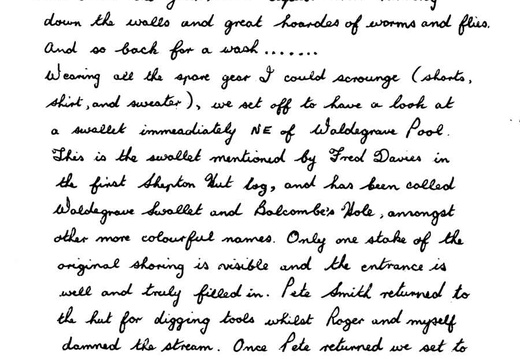 down the walls and great hoardes of worms and flies.
And so back for a wash.......
Wearing all the spare gear I could scrounge (shorts,
shirt, and sweater), we set off to have a look at
a swallet immeadiately NE of Waldegrave Pool.
This is the swallet mentioned by Fred Davies in
the first Shepton Hut log, and has been called
Waldegrave Swallet and Balcombe's Hole, amongst
other more colourful names. Only one stake of the
original shoring is visible and the entrance is
well and truly filled in. Pete Smith returned to
the hut for digging tools whilst Roger and myself
damned the stream. Once Pete returned we set to